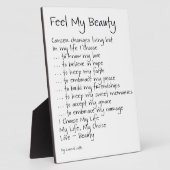 Feel My Beauty
Cancer changes living but
in my life I choose
... to know my use
... to believe in hope
... to keep my faith
... to embrace my grace
... to build my friendships
... to keep my sweet memories
... to accept my grace
... to embrace my courage
I Choose My Life
My Life, My Choice
Life - Beauty